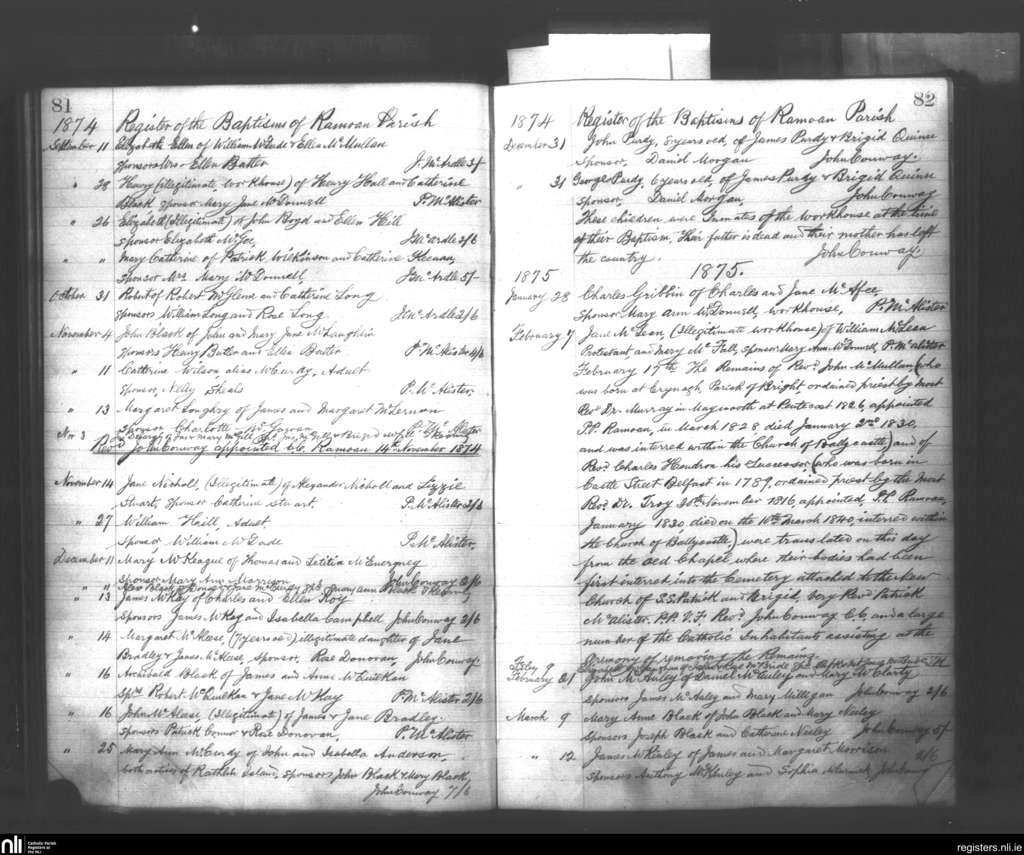 81
1874 Register of the Baptisms of Ramoan Parish
September 11 Elizabeth Ellen of William McDade & Ellen McMullan
Sponsors Mrs Ellen Butter J. McArdle 5/-
" 28 Henry (illegitimate, workhouse) of Henry Hall and Catherine
Black sponsor Mary Jane McDonnell P. McAlister
" 26 Elizabeth (Illegitimate) of John Boyd and Ellen Hill
Sponsor Elizabeth McGee, J McArdle 2/6
" " Mary Catherine of Patrick Wilkinson and Catherine Keenan,
Sponsor Mrs Mary McDonnell, J McArdle 5/-
October 31 Robert of Robert McGlenn and Catherine Long
Sponsors William Long and Rose Long J McArdle 2/6
November 4 John Black of John and Mary Jane McLaughlin
Sponsors Henry Butler and Ellen Butter P. McAlister
" 11 Catherine Wilson, alias McCurdy, Adult
Sponsor, Nelly Sheals P. McAlister
" 13 Margaret Loughry of James and Margaret McLernon
Sponsor Charlotte McGowan P. McAlister
Nov 3
Revd John Conway appointed CC. Ramoan 14th November 1874
November 14 Jane Nicholl (Illegitimate) of Alexander Nicholl and Lizzie
Stuart, sponsor Catherine Stuart. P. McAlister 2/6
" 27 William Haill, Adult
Sponsor William McDade P. McAlister,
December 11 Mary McKeague of Thomas and Letitia McEnerney
Sponsor Mary Ann Morrison John Conway
" 13 James McKay of Charles and Ellen Roy
Sponsors James McKay and Isabella Campbell John Conway 2/6
" 14 Margaret McAleese, (7 years old) illegitimate daughter of Jane
Bradley & James McAleese, Sponsor, Rose Donovan, John Conway.
" 16 Archibald Black of James and Anne McCuickan
Sprs Robert McCuickan & Jane McKay P. McAlister 2/6
" 16 John McAleese, (Illegitimate) of James & Jane Bradley
Sponsors Patrick Connor & Rose Donovan, P. McAlister
" 25 Mary Ann McCurdy of John and Isabella Anderson,
both natives of Rathlin Island, Sponsors John Black & Mary Black,
John Conway 7/6
82
1874 Register of the Baptisms of Ramoan Parish
December 31 John Purdy, 8 years old, of James Purdy & Brigid Quinn
Sponsor, Daniel Morgan John Conway.
" 31 George Purdy, 6 years old, of James Purdy & Brigid Quinn
Sponsor, Daniel Morgan, John Conway
These children were Inmates of the workhouse at the time
of their Baptism, their father is dead and their mother has left
the country. John Conway.
1875 1875.
January 28 Charles Gribbin of Charles and Jane McAfee,
Sponsor Mary Ann McDonnell workhouse, P. McAlister
February 7 Jane McLean, (Illegitimate workhouse) of William McLean
Protestant, and Mary McFall, sponsor Mary Ann McDonnell, P. McAlister
February 17th The Remains of Revd John McMullan (who
was born at Erynagh, Parish of Bright ordained priest by most
Revd Dr. Murray in Maynooth at Pentecost 1826, appointed
P.P. Ramoan, in March 1828 died January 2nd 1830,
and was interred within the Church of Ballycastle) and of
Revd Charles Hendron his Successor (who was born in
Castle Street Belfast in 1789, ordained priest by the most
Revd Dr. Troy 30th November 1816, appointed, P.P. Ramoan,
January 1830, died on the 10th March 1840, interred within
the Church of Ballycastle) were translated on this day
from the Old Chapel where their bodies had been
first interred into the Cemetery attached to the New
Church of S.S. Patrick and Brigid, Very Revd Patrick
McAlister P.P. V.F. Revd John Conway C.C. and a large
number of the Catholic Inhabitants assisting at the
Ceremony of removing the Remains.
Feby 9
February 21 John McAuley of Daniel McAuley and Mary McClarty
Sponsors James McAuley and Mary Milligan John Conway 2/6
March 9 Mary Anne Black of John Black and Mary Neeley
Sponsors Joseph Black and Catherine Neeley John Conway 5/-
" 12 James McKinley of James and Margaret Morrison 2/6
Sponsors Anthony McKinley and Sophia McCormick John Conway
nli
Catholic Parish
Registers at
the NLI
registers.nli.ie